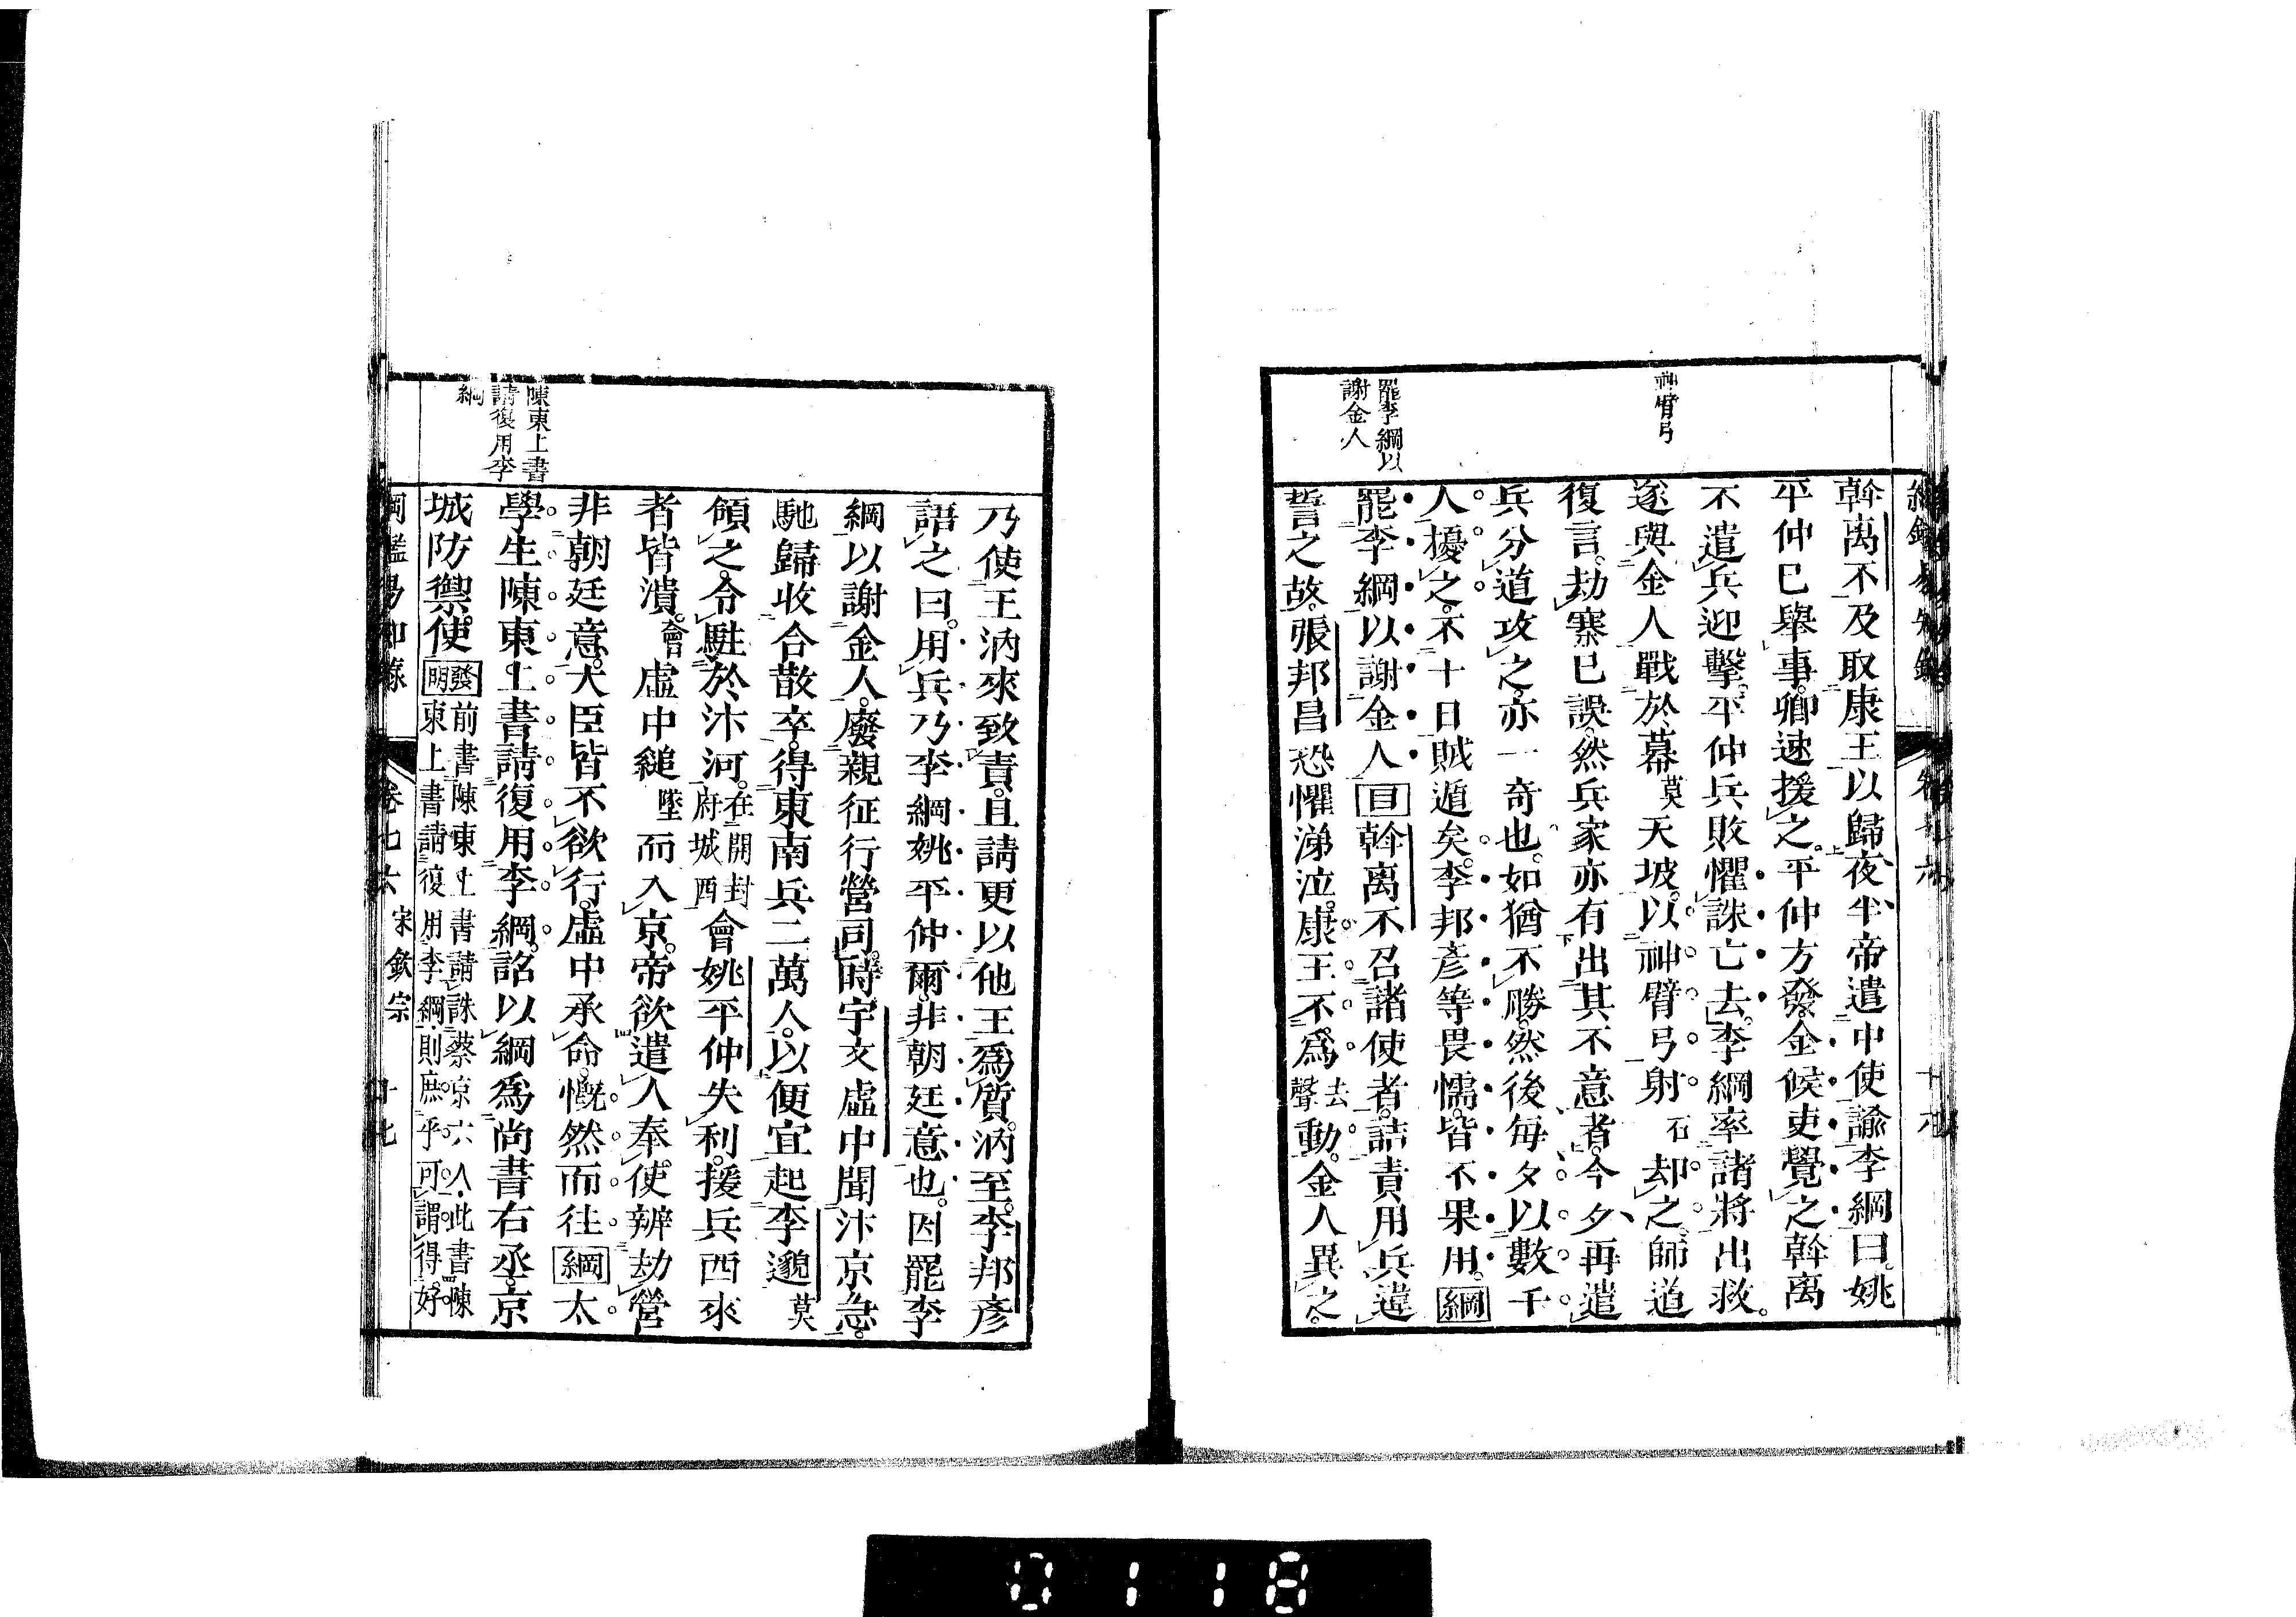 神臂弓
罷李綱以
謝金人
斡离不及取康王以歸夜半帝遣中使諭李綱曰。姚
平仲已舉事。卿速援之。平仲方發。金候吏覺之斡离
不遣兵迎擊。平仲兵敗懼誅亡去。李綱率諸將出救。
遂與金人戰於幕莫天坡。以神臂弓射石却之。師道
復言。劫寨已誤。然兵家亦有出其不意者。今夕再遣
兵分道攻之。亦一奇也。如猶不勝。然後每夕以數千
人擾之。不十日賊遁矣。李邦彥等畏懦。皆不果用。綱
罷李綱以謝金人目斡离不召諸使者。詰責用兵違
誓之故。張邦昌恐懼涕泣。康王不爲去聲動。金人異之。
乃使王汭來致責。且請更以他王爲質。汭至。李邦彥
語之曰。用兵乃李綱姚平仲爾。非朝廷意也。因罷李
綱以謝金人。廢親征行營司。時宇文虛中聞汴京急。
馳歸收合散卒。得東南兵二萬人。以便宜起李邈莫
領之。令駐於汴河。在開封
府城西會姚平仲失利。援兵西來
者皆潰。會虛中縋墜而入京。帝欲遣人奉使辨劫營
非朝廷意。大臣皆不欲行。虛中承命。慨然而往綱太
學生陳東上書請復用李綱。詔以綱爲尚書右丞。京
城防禦使發明前書陳東上書請誅蔡京六人。此書陳
東上書請復用李綱。則庶乎可謂得好
陳東上書
請復用李
綱
綱鑑易知錄 卷七六 宋欽宗 十七